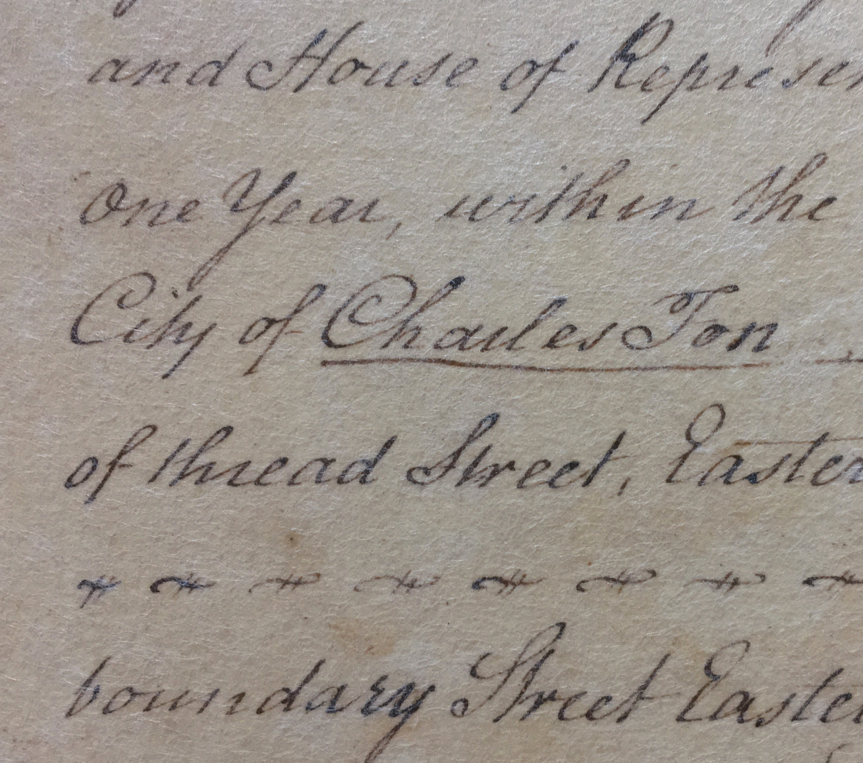 and House of Represen
One Year, within the
City of Charles Ton
of thread Street, Easter
boundary Street Easte